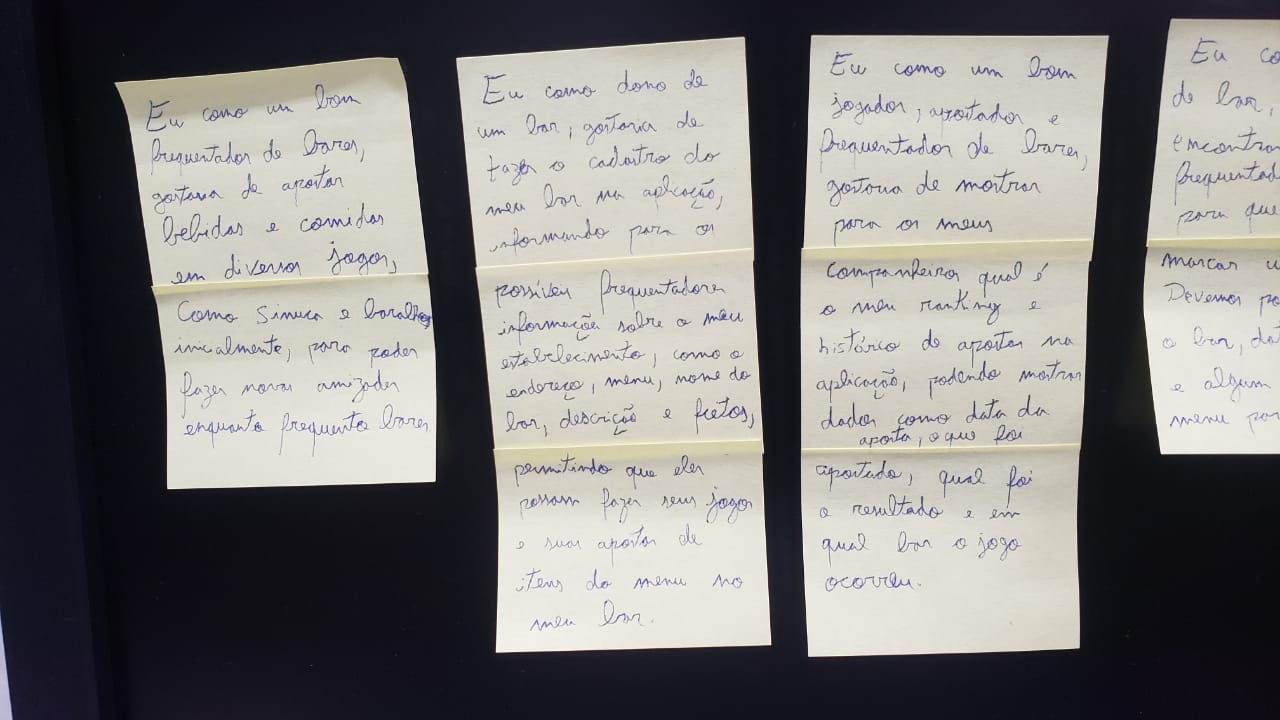 Eu como um bom
frequentador de bares,
gostaria de apostar
bebidas e comidas
em diversos jogos,
como sinuca e baralhos
inicialmente, para poder
fazer novas amizades
enquanto frequento bares
Eu como dono de
um bar, gostaria de
fazer o cadastro do
meu bar na aplicação,
informando para os
possíveis frequentadores
informações sobre o meu
estabelecimento, como o
endereço, menu, nome do
bar, descrição e fotos,
permitindo que eles
possam fazer seus jogos
e suas apostas de
itens do menu no
meu bar.
Eu como um bom
jogador, apostador e
frequentador de bares,
gostaria de mostrar
para os meus
companheiros qual é
o meu ranking e
histórico de apostas na
aplicação, podendo mostrar
dados como data da
aposta, o que foi
apostado, qual foi
o resultado e em
qual bar o jogo
ocorreu.
Eu co
de bar,
encontrar
frequentad
para que
marcar u
Devemos po
o bar, da
e algum
menu pa